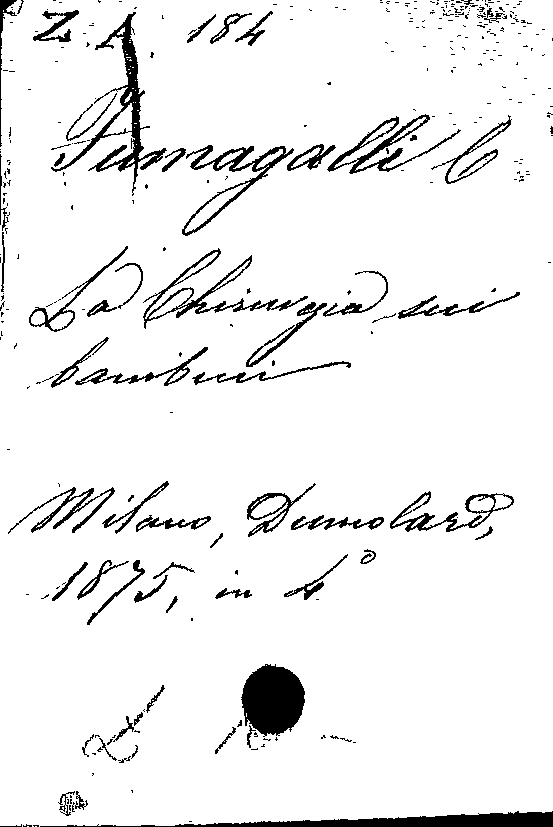 Z. A. 184
Fumagalli C
La Chirurgia sui
bambini
Milano, Dumolard,
1875, in 4°